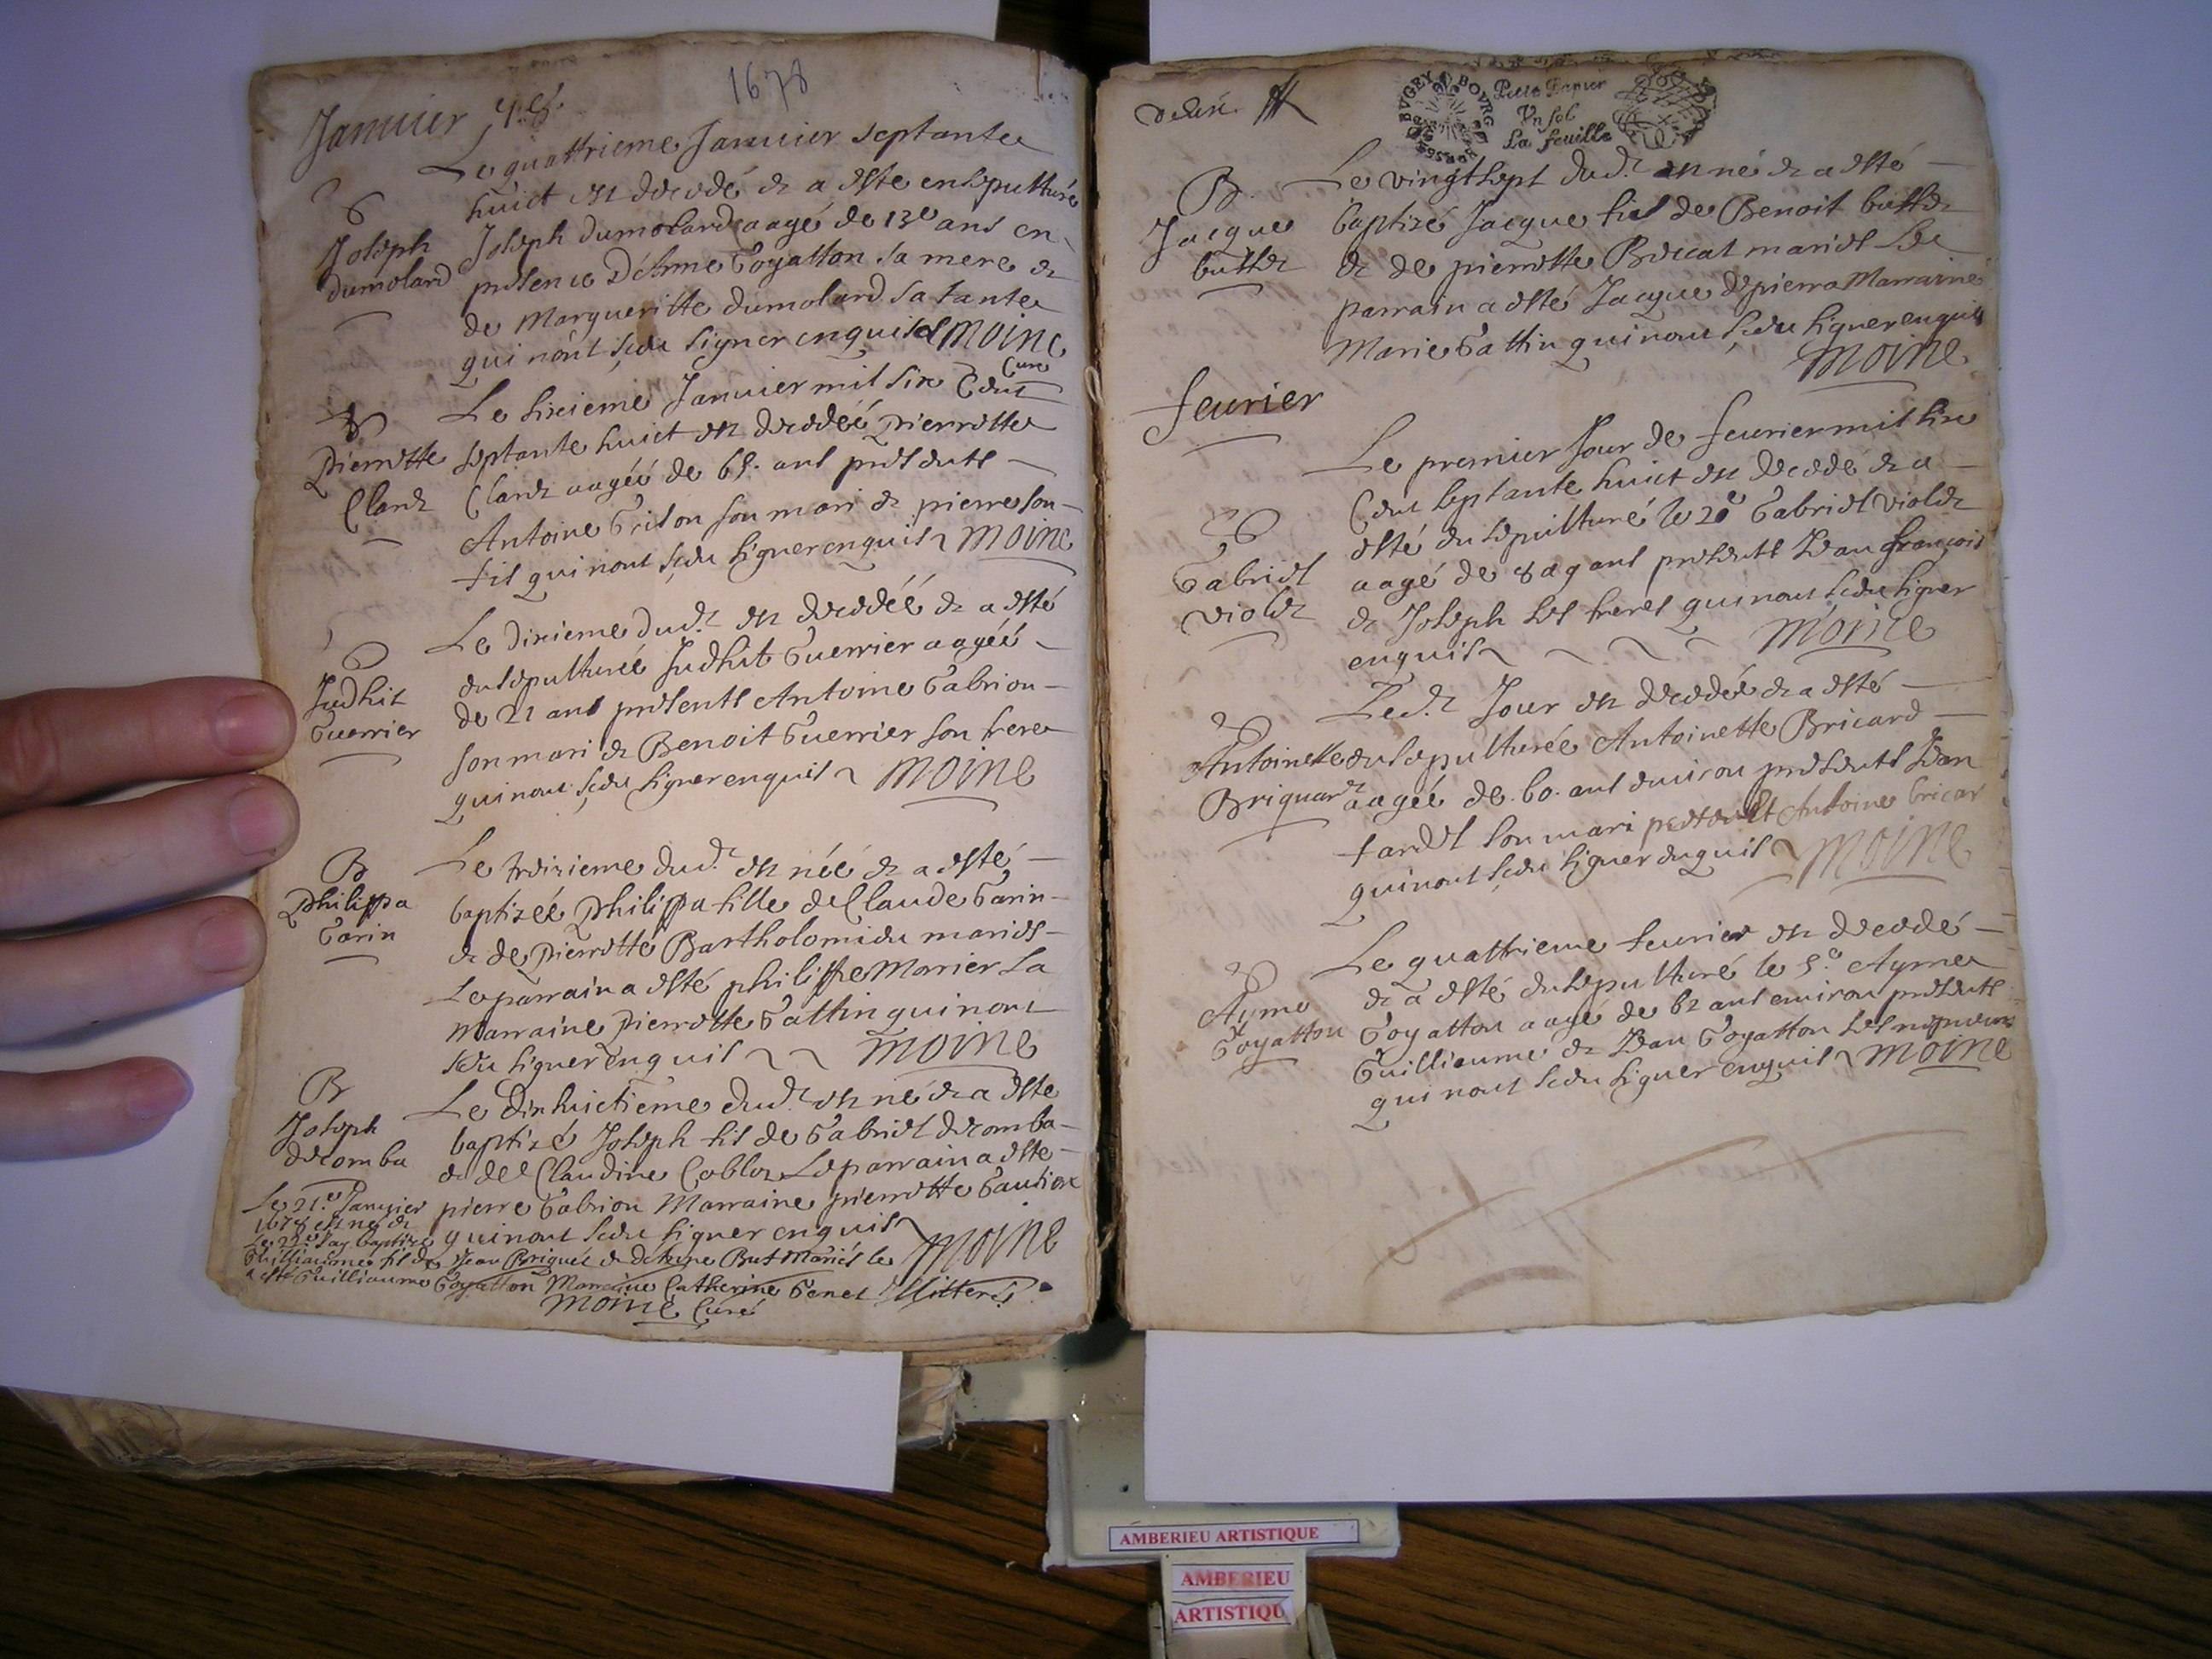 1678
Januier
Le quattrieme Januier septante
huict est decedé & a esté ensepulturé
Joseph dumolard aagé de 13e ans en
presence D'Anne Goyatton sa mere &
de Margueritte dumolard sa tante
qui n'ont sceu signer enquises Moine
Curé
Joseph
dumolard
Le sixieme Januier mil six Cent
septante huict est decedée pierrette
Clard aagée de 65. ans presents
Antoine Grison son mari & pierre son
fils qui nont sceu signer enquis Moine
Pierrette
Clard
Le dixieme dud.t est decedée & a esté
ensepulturée Judhit Guerrier aagée
de 21 ans presents Antoine Gabrion
son mari & Benoit Guerrier son frere
qui nont sceu signer enquis Moine
Judhit
Guerrier
Le treizieme dud.t est née & a esté
baptizée Philippa fille de Claude Garin
& de Pierrette Bartholomieu mariés
Le parrain a esté philippe Monier La
Marraine Pierrette Gattin qui nont
sceu signer enquis Moine
B
Philippa
Garin
Le dixhuictieme dud.t est né & a esté
baptizé Joseph fils de Gabriel decomba
& de Claudine Le parrain a esté
pierre Gabrion Marraine pierrette
qui nont sceu signer enquis Moine
B
Joseph
decomba
Le 21.e Januier
1678 est né &
Le 22.e baptizé
Guilliaume fils de Jean Briquet & de Mariés le
a esté Guilliaume Goyatton Marraine Catherine Genet Illitterés
Moine Curé
BVGEY BOVRG
Petit Papier
Vn sol
La feuille
Le vingtsept dud.t est né & a esté
baptizé Jacque fils de Benoit buttet
& de pierrette mariés Le
parrain a esté Jacque depierra Marraine
Marie Gattin qui nont sceu signer enquis
Moine
B
Jacque
buttet
feurier
Le premier Jour de feurier mil six
Cent septante huict est decedé & a
esté ensepulturé le 2e Gabriel violet
aagé de ans presents Jean françois
& Joseph ses freres qui nont sceu signer
enquis Moine
Gabriel
violet
Led.t Jour est decedée & a esté
ensepulturée Antoinette Bricard
aagée de .60. ans enuiron presents Jean
fardel son mari Antoine bricar
qui nont sceu signer enquis Moine
Antoinette
Briquard
Le quattrieme feurier est decedé
& a esté ensepulturé le 5.e Ayme
Goyatton aagé de 62 ans enuiron presents
Guilliaume & Jean Goyatton ses nepueus
qui nont sceu signer enquis Moine
Ayme
Goyatton
AMBERIEU ARTISTIQUE
AMBERIEU
ARTISTIQU